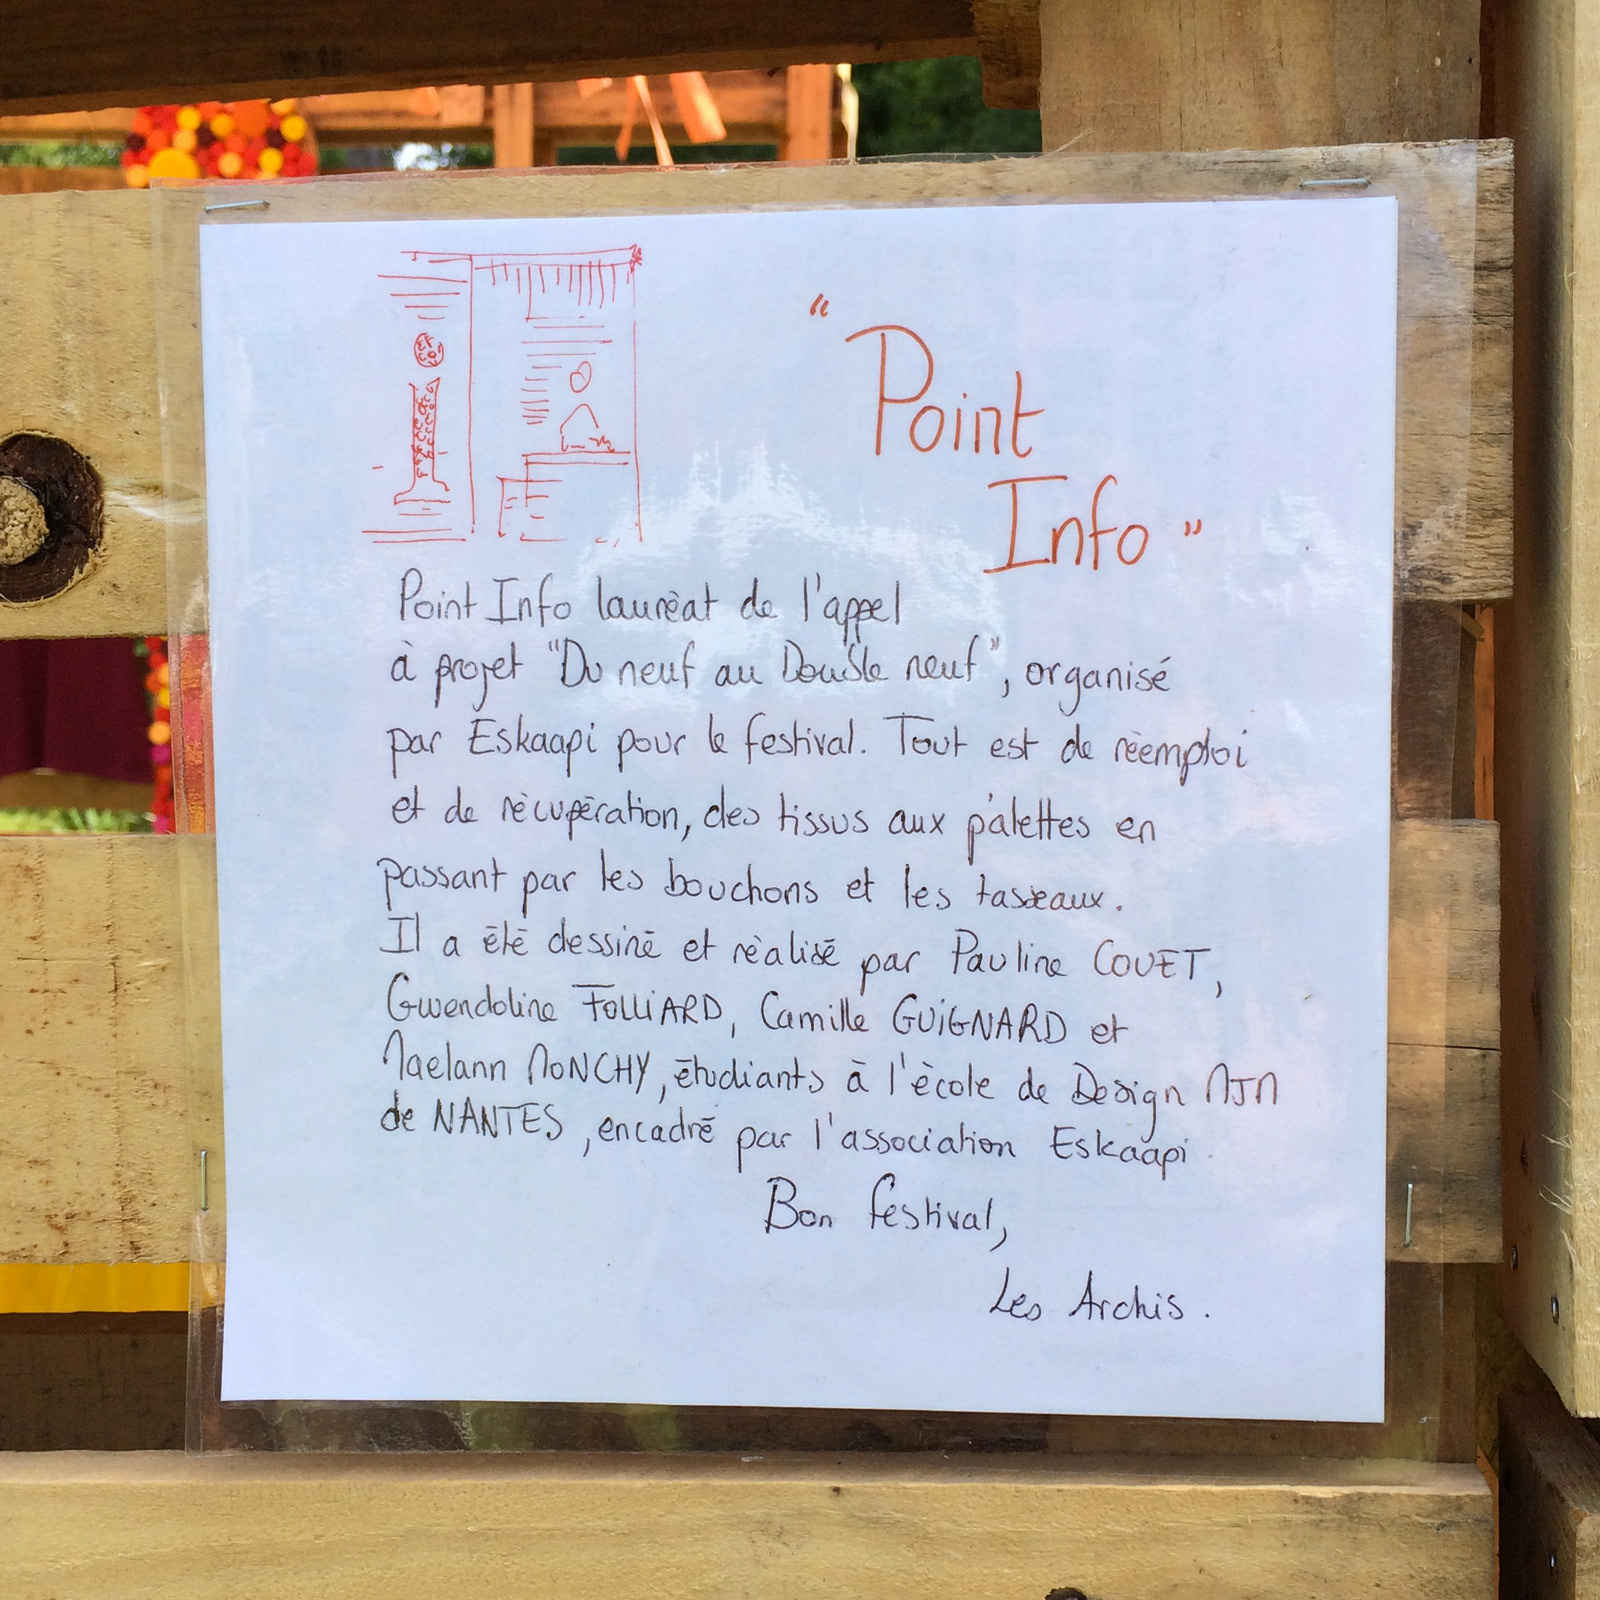 “Point
Info”
Point Info lauréat de l'appel
à projet "Du neuf au Double neuf", organisé
par Eskaapi pour le festival. Tout est de réemploi
et de récupération, des tissus aux palettes en
passant par les bouchons et les tasseaux.
Il a été dessiné et réalisé par Pauline COUET,
Gwendoline FOLLIARD, Camille GUIGNARD et
Maelann MONCHY, étudiants à l'école de Design MJM
de NANTES, encadré par l'association Eskaapi.
Bon festival,
Les Archis.